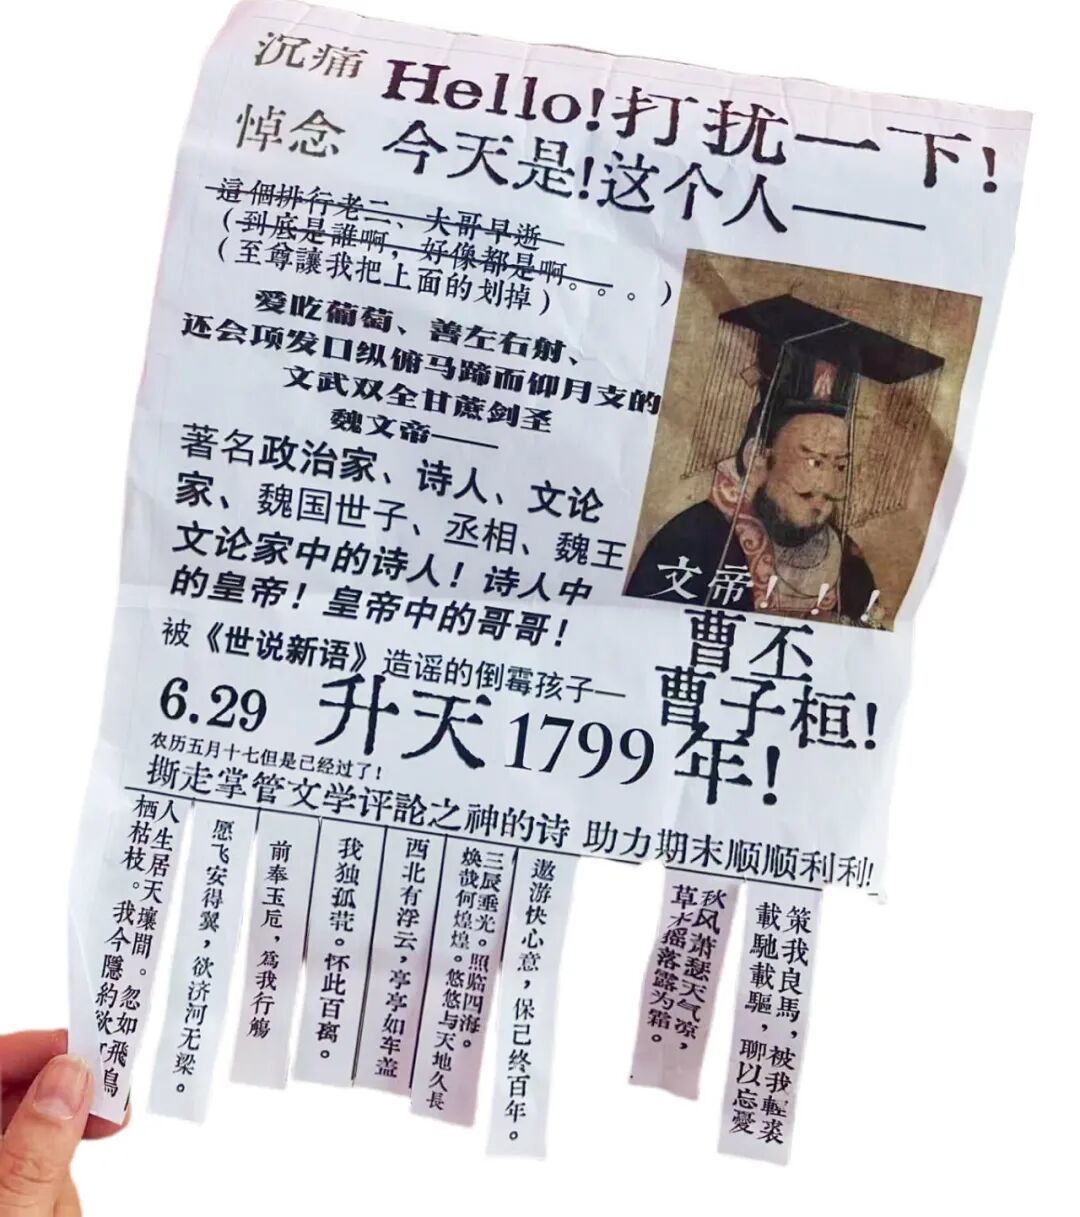 沉痛
悼念
Hello!打扰一下!
今天是!这个人——
這個排行老二、大哥早逝
(到底是誰啊，好像都是啊。。。)
(至尊讓我把上面的划掉)
爱吃葡萄、善左右射、
还会项发口纵俯马蹄而仰月支的
文武双全甘蔗剑圣
魏文帝——
著名政治家、诗人、文论
家、魏国世子、丞相、魏王
文论家中的诗人！诗人中
的皇帝！皇帝中的哥哥！
被《世说新语》造谣的倒霉孩子—
文帝！！！
曹丕
曹子桓!
6.29 升天1799年!
农历五月十七但是已经过了!
撕走掌管文学评論之神的诗 助力期末顺顺利利!
人生居天壤間。忽如飛鳥
栖枯枝。我今隱約欲
愿飞安得翼，欲济河无梁。
前奉玉卮，為我行觴
我独孤茕。怀此百离。
西北有浮云，亭亭如车盖
三辰垂光。照临四海。
焕哉何煌煌。悠悠与天地久長
遨游快心意，保己终百年。
秋风萧瑟天气凉，
草木摇落露为霜。
策我良馬，被我輕裘
載馳載驅，聊以忘憂